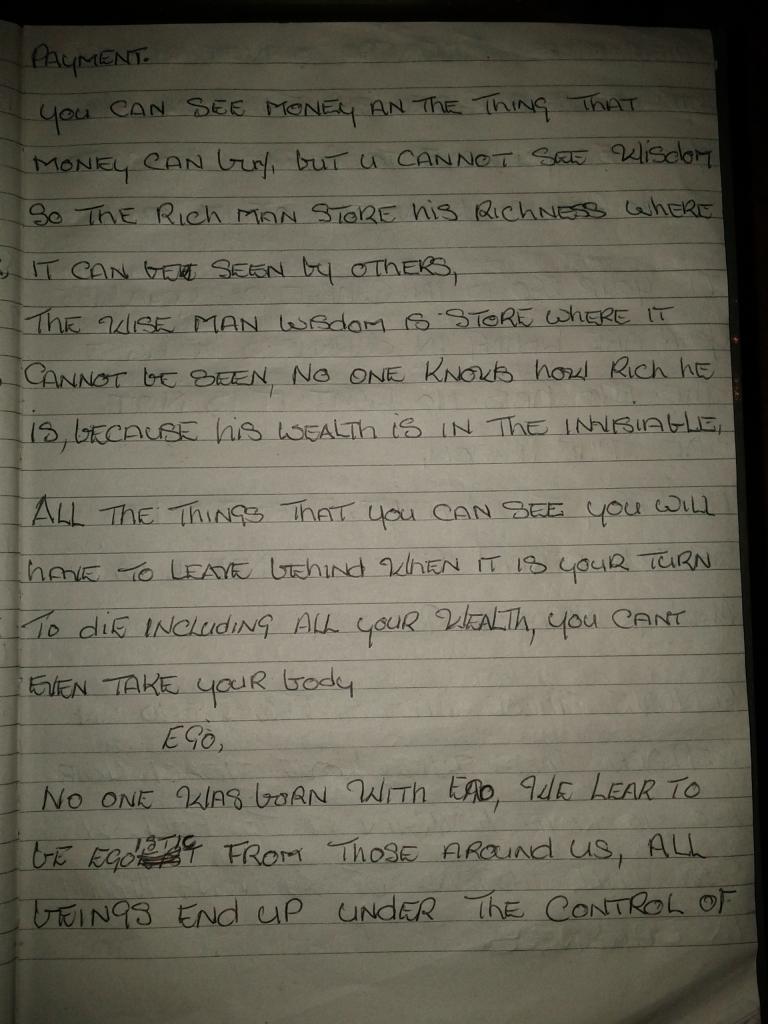 PAYMENT.
YOU CAN SEE MONEY AN THE THING THAT
MONEY CAN buy, buT U CANNOT SEE WisdOM
SO THE RicH MAN STORE his RICHNESS WHERE
IT CAN bE SEEN by OTHERS,
THE WISE MAN WISdom is STORE WHERE IT
CANNOT bE SEEN, NO ONE KNOWS how RicH HE
is, bECAUSE his WEALTH is IN THE INVISIABLE,
ALL THE THINGS THAT you CAN SEE you WILL
HAVE TO LEAVE bEHINd WHEN IT IS YOUR TURN
TO diE INCLUdiNG ALL YOUR WEALTH, YOU CANT
EVEN TAKE your body
EGO,
NO ONE WAS bORN WITH EGO, WE LEAR TO
bE EGOISTIC FROM THOSE AROUNd US, ALL
bEINGS END UP UNDER THE CONTROL OF